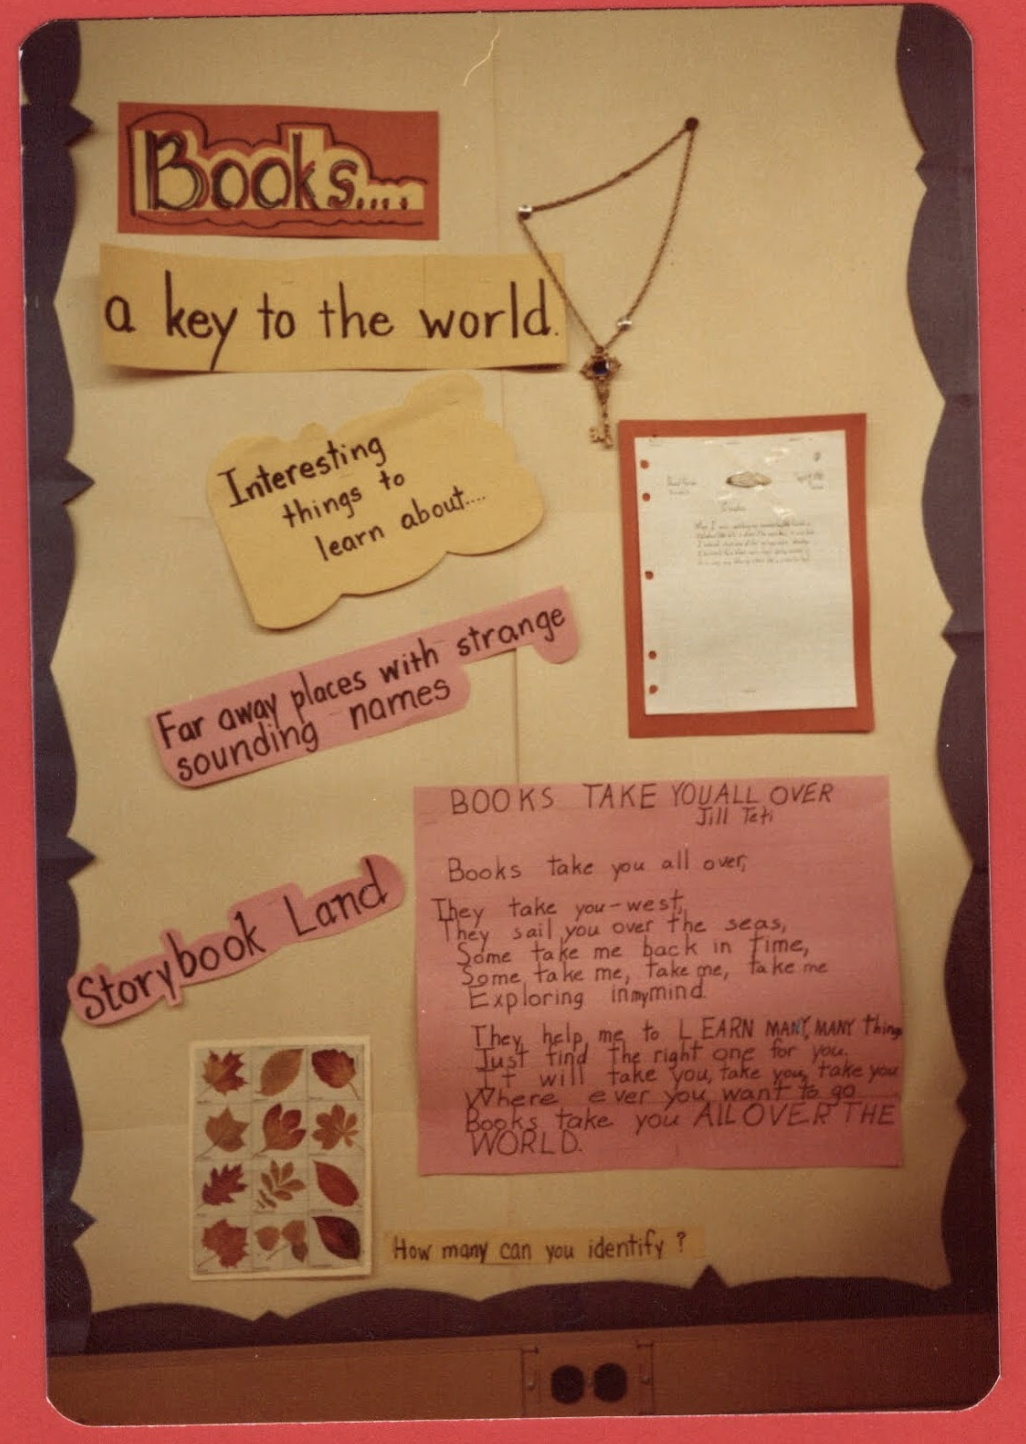 Books...
a key to the world.
Interesting
things to
learn about....
Far away places with strange
sounding names
BOOKS TAKE YOU ALL OVER
Jill Teti
Books take you all over,
They take you-west,
They sail you over the seas,
Some take me back in time,
Some take me, take me, take me
Exploring in my mind.
They help me to LEARN MANY, MANY things
Just find the right one for you.
It will take you, take you, take you
Where ever you want to go
Books take you ALL OVER THE
WORLD.
Storybook Land
How many can you identify?